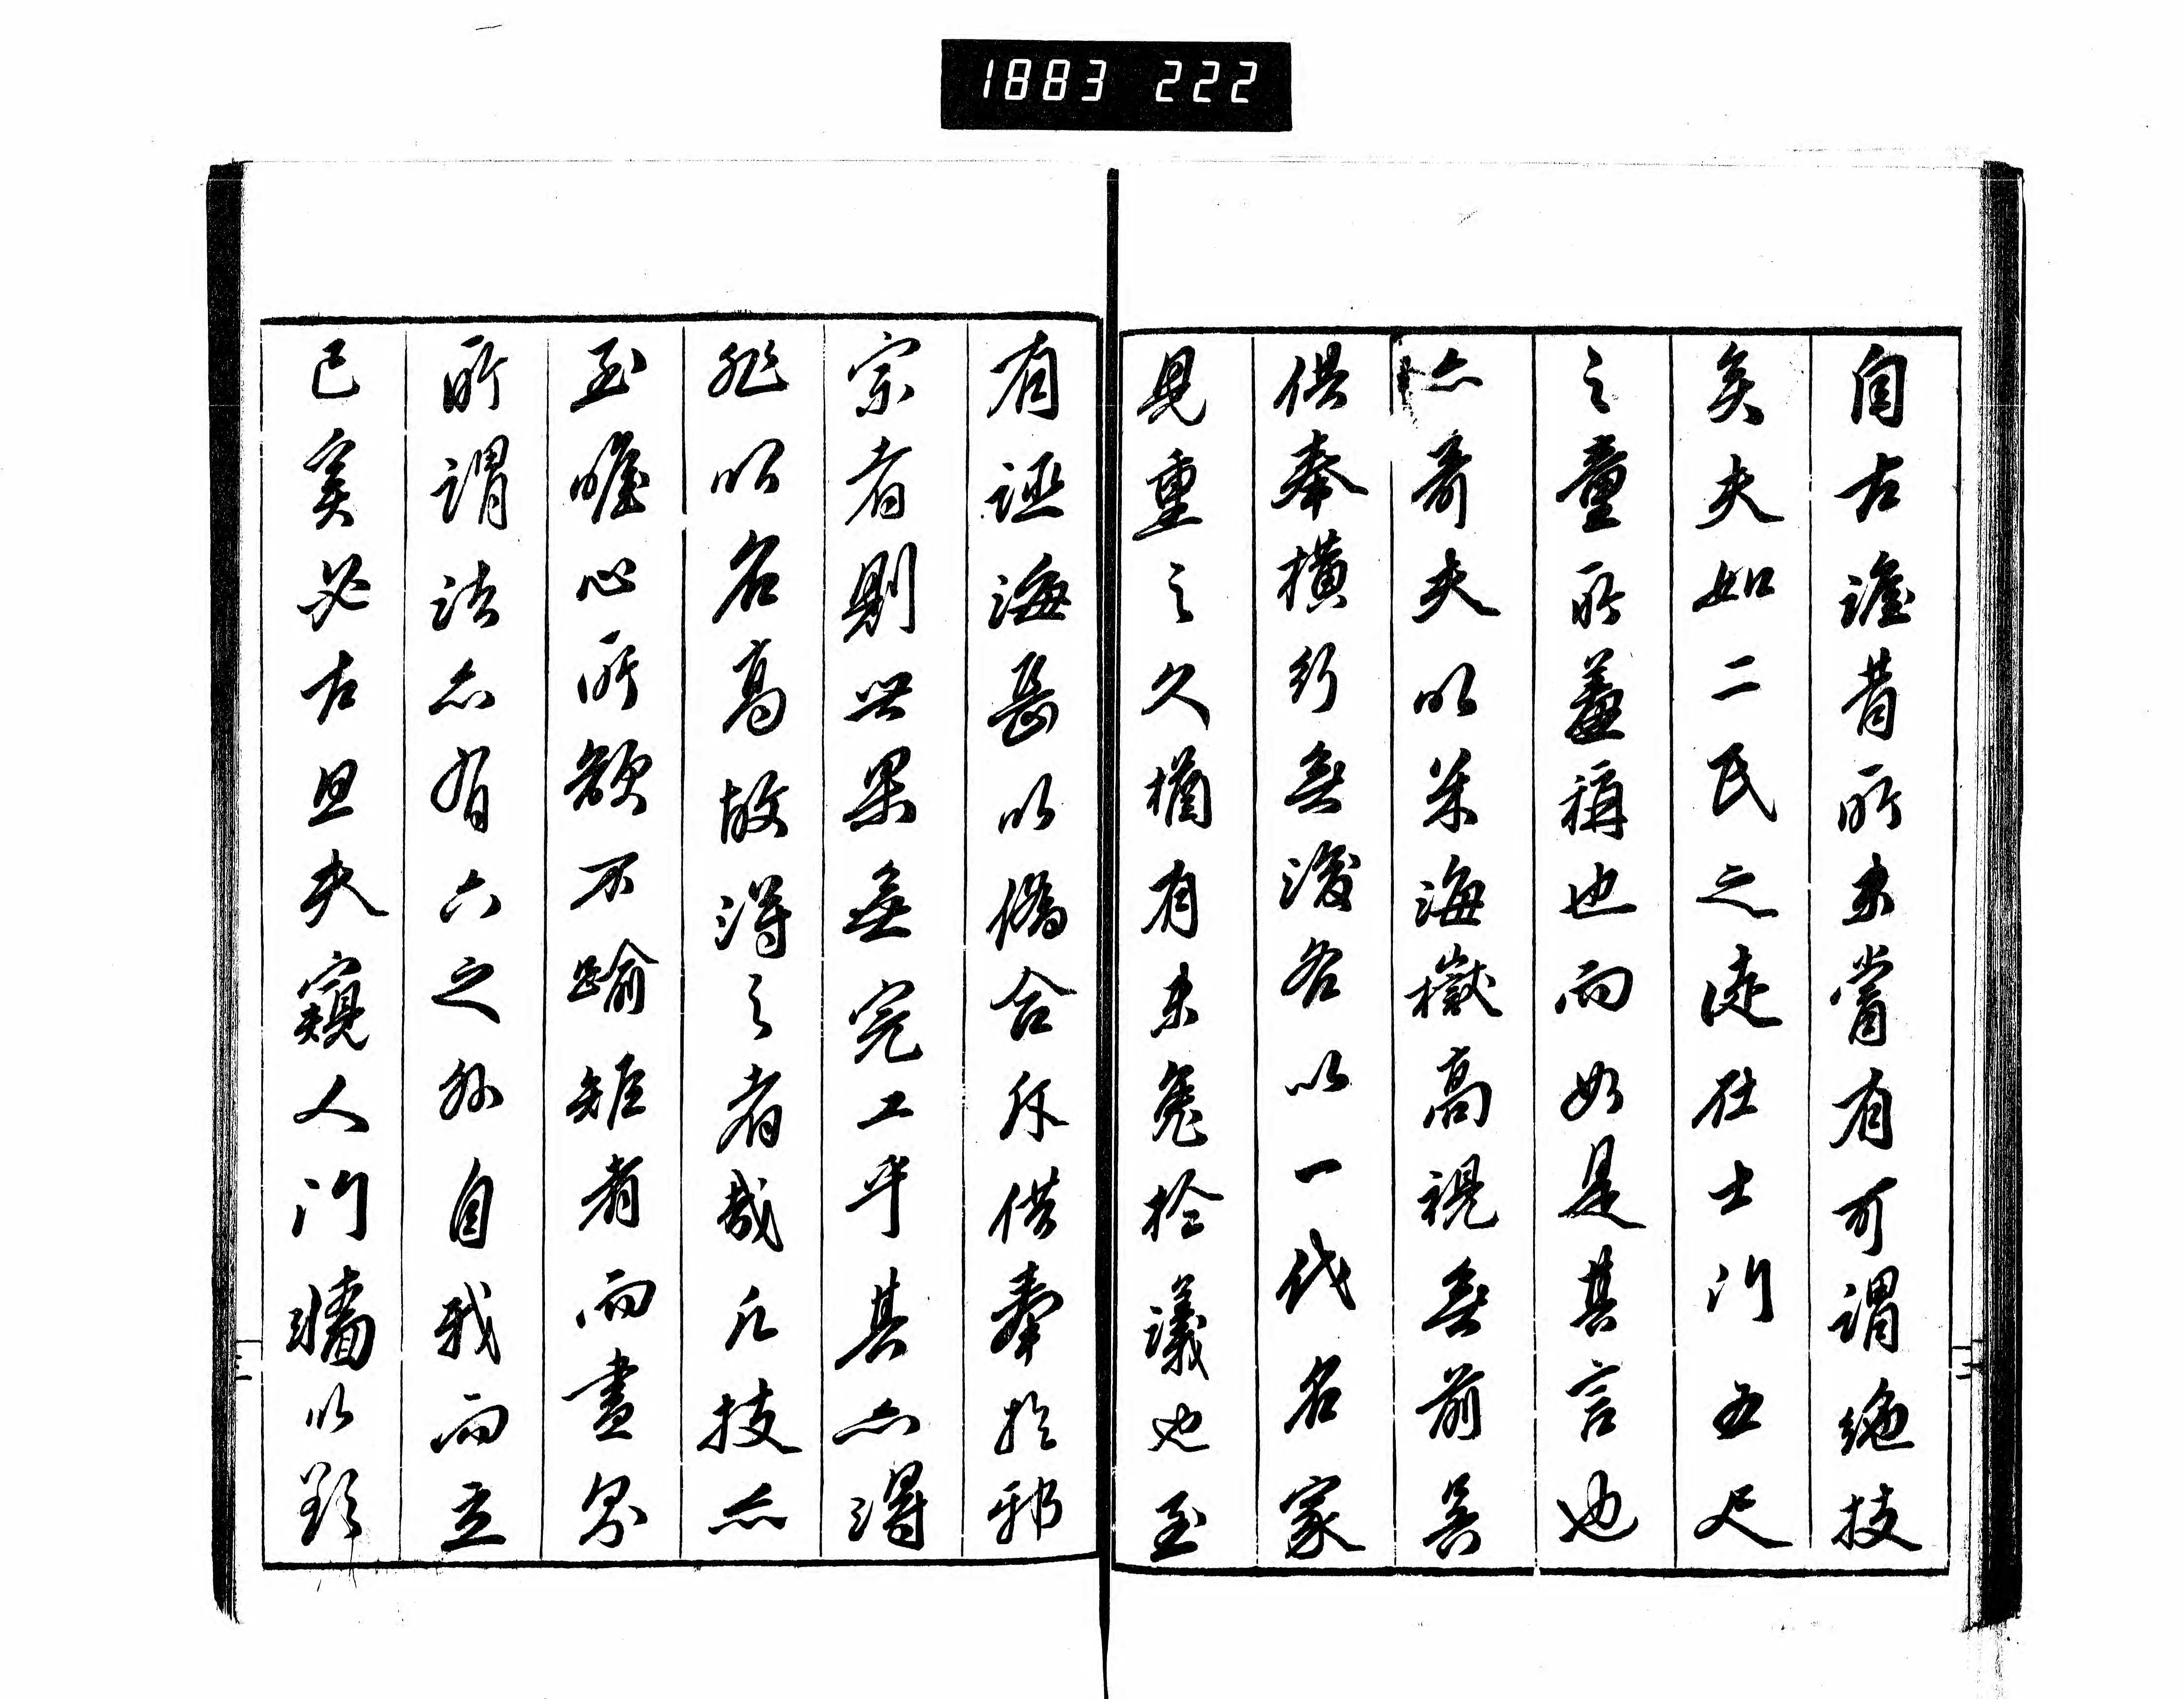 1883 222
自古詮昔所未嘗有可謂絶技
矣夫如二氏之徒在士門五尺
之童所羞稱也而如是其言也
亦奇夫以米海嶽高視無前吳
供奉横行無後各以一代名家
見重之久猶有未免於議也至
有誣海岳以偽合斥供奉於邪
宗者則世果無完工乎其亦得
非以名高故得之者哉凡技亦
至曕心所欲不踰矩者而盡矣
所謂法亦有六之外自我而立
已矣必古且夫窺人門牆以